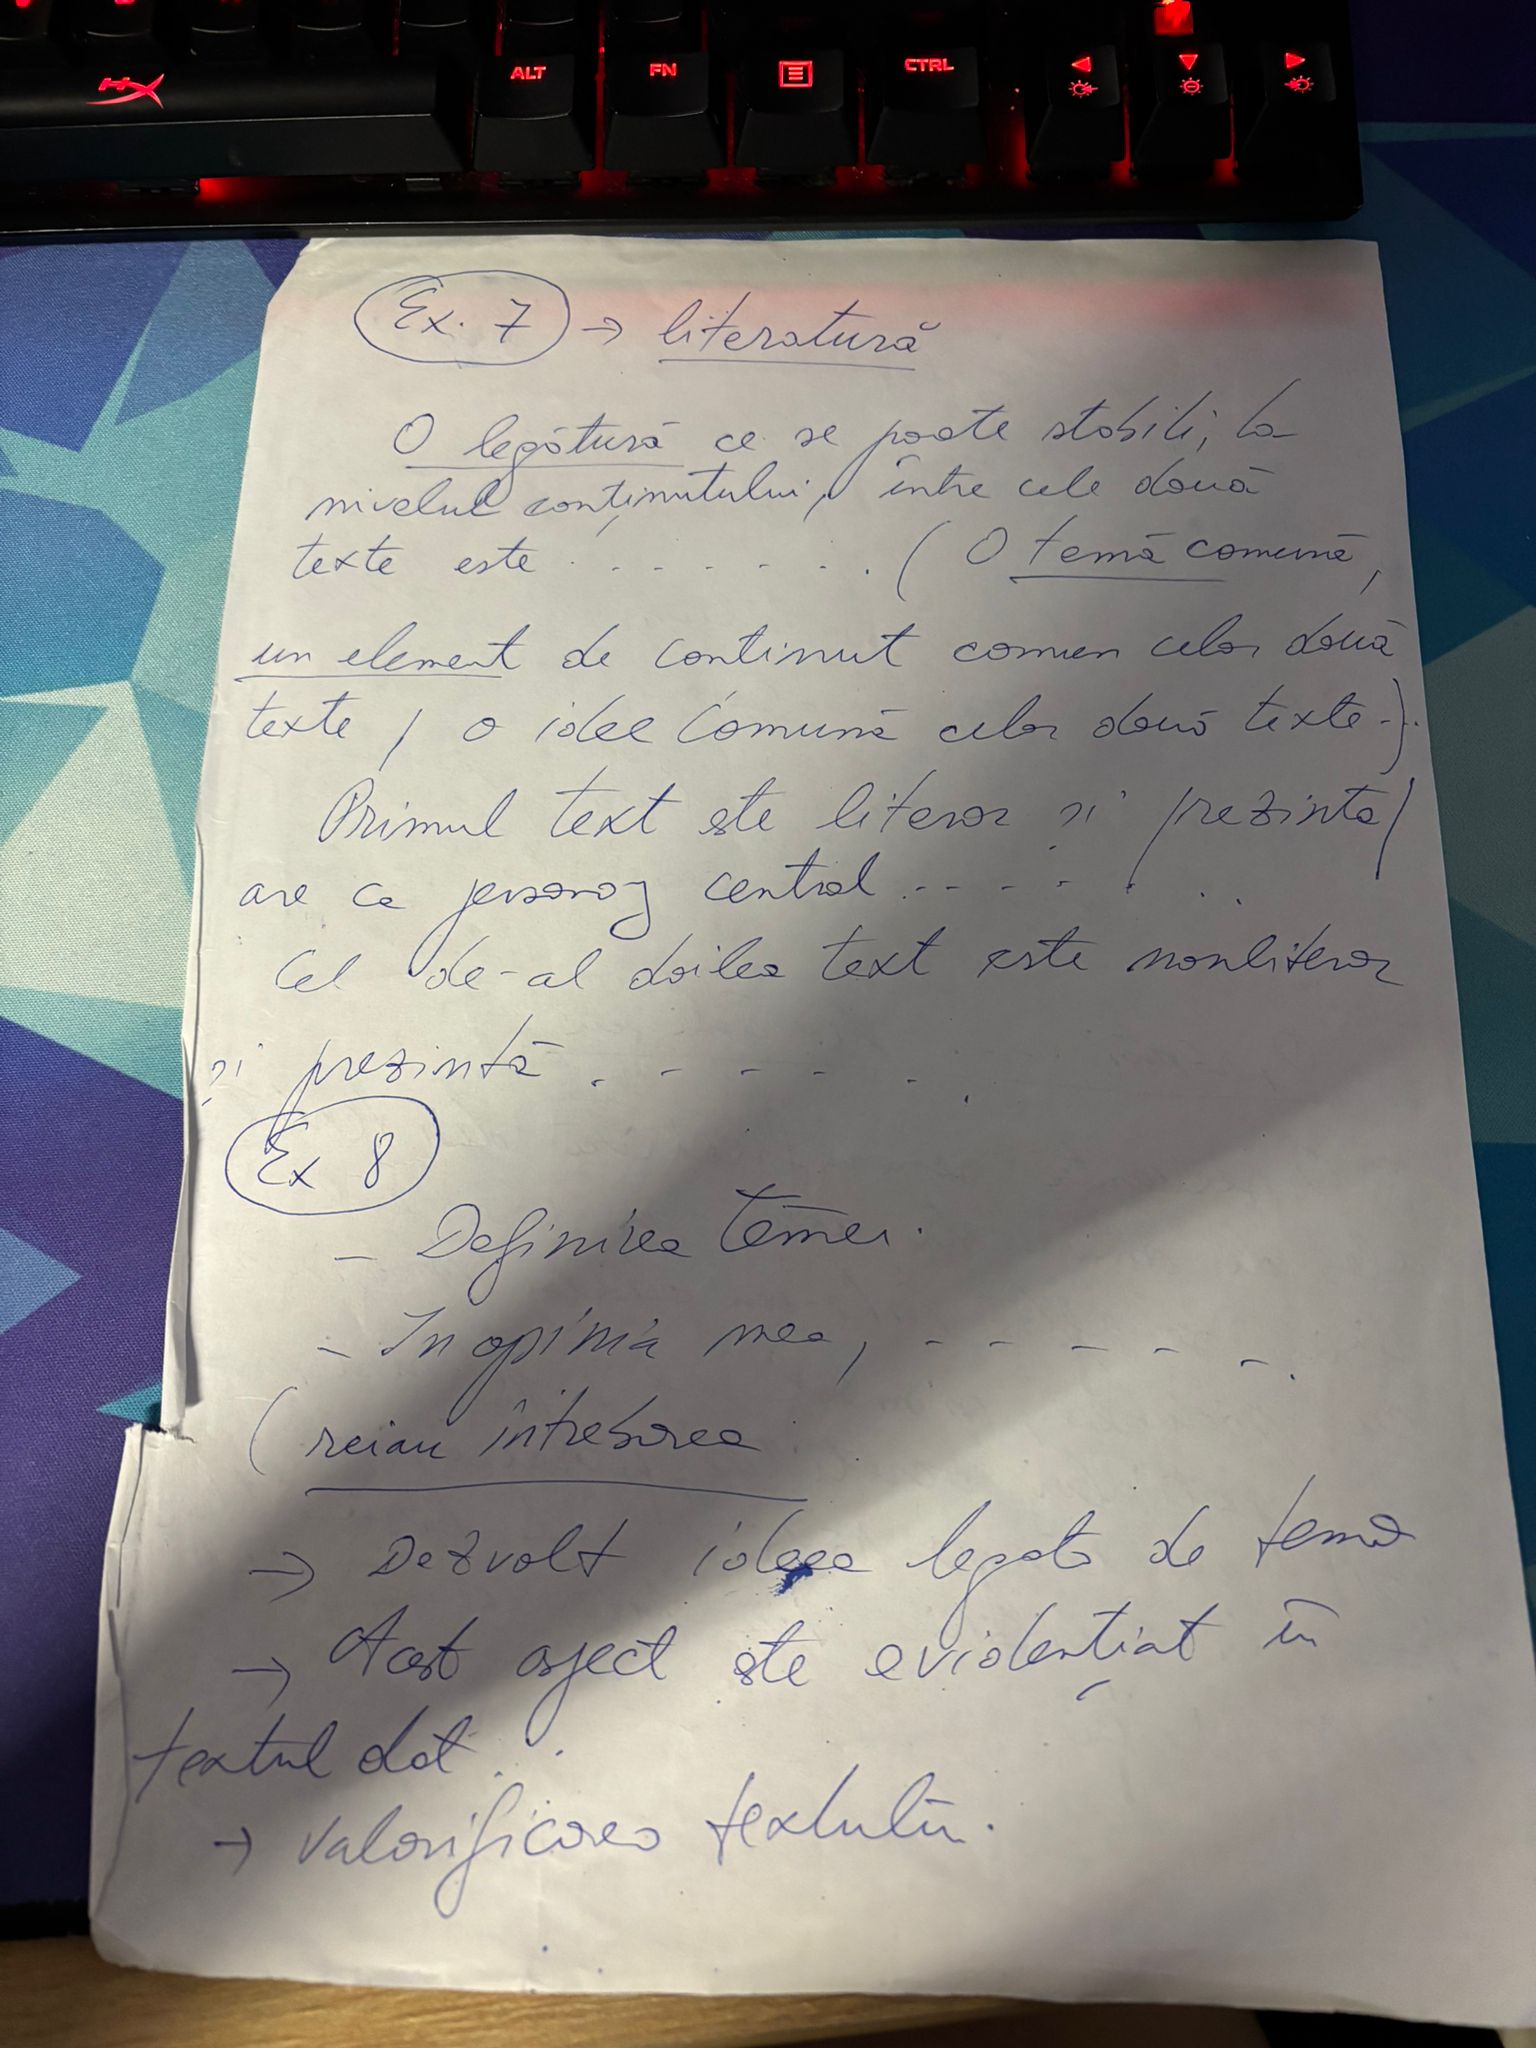 HX
ALT
FN
CTRL
Ex. 7 → literatură
O legătură ce se poate stabili, la
nivelul conținutului, între cele două
texte este . . . . . . . . (O temă comună,
un element de continut comun celor două
texte / o idee comună celor două texte..).
Primul text este literar și prezinta/
are ca personaj central . - - - . . .
Cel de-al doilea text este nonliterar
și prezintă . - - - - .
Ex 8
- Definirea temei.
- In opinia mea, - - - - - .
(reiau întrebarea
→ Dezvolt ideea legata de tema
→ Acest aspect este evidențiat în
textul dat..
→ Valorificarea textului.